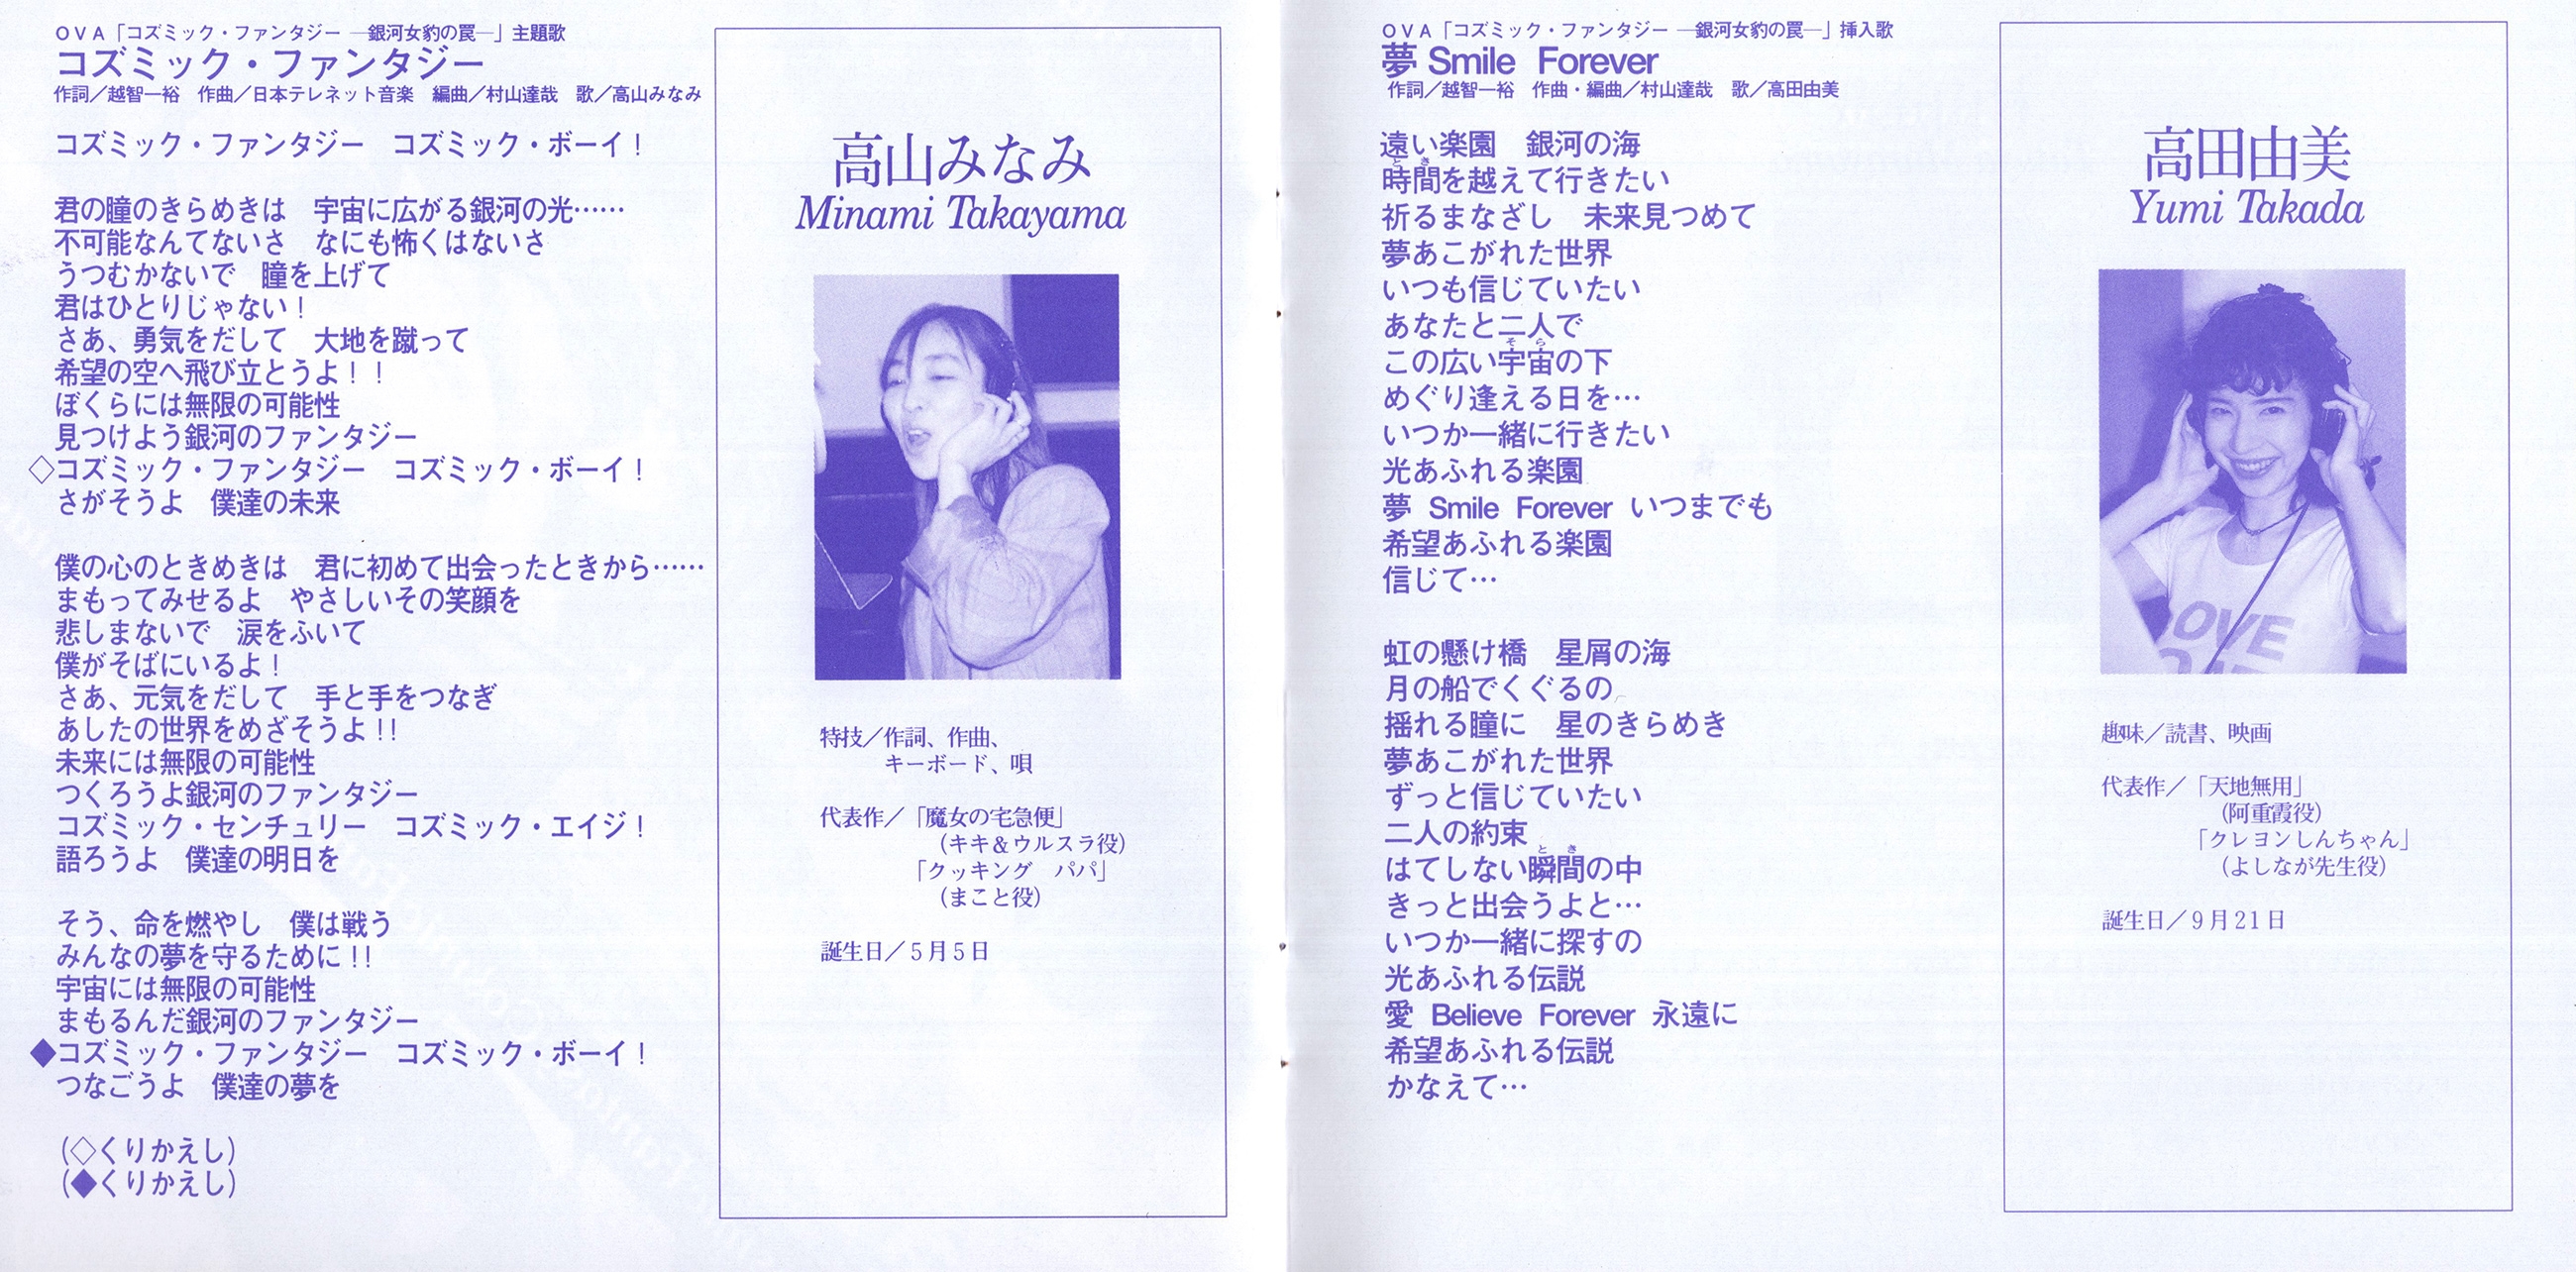 OVA「コズミック・ファンタジー ―銀河女豹の罠―」主題歌
コズミック・ファンタジー
作詞／越智一裕　作曲／日本テレネット音楽　編曲／村山達哉　歌／高山みなみ
コズミック・ファンタジー　コズミック・ボーイ！
君の瞳のきらめきは　宇宙に広がる銀河の光……
不可能なんてないさ　なにも怖くはないさ
うつむかないで　瞳を上げて
君はひとりじゃない！
さあ、勇気をだして　大地を蹴って
希望の空へ飛び立とうよ！！
ぼくらには無限の可能性
見つけよう銀河のファンタジー
◇コズミック・ファンタジー　コズミック・ボーイ！
さがそうよ　僕達の未来
僕の心のときめきは　君に初めて出会ったときから……
まもってみせるよ　やさしいその笑顔を
悲しまないで　涙をふいて
僕がそばにいるよ！
さあ、元気をだして　手と手をつなぎ
あしたの世界をめざそうよ!!
未来には無限の可能性
つくろうよ銀河のファンタジー
コズミック・センチュリー　コズミック・エイジ！
語ろうよ　僕達の明日を
そう、命を燃やし　僕は戦う
みんなの夢を守るために!!
宇宙には無限の可能性
まもるんだ銀河のファンタジー
◆コズミック・ファンタジー　コズミック・ボーイ！
つなごうよ　僕達の夢を
(◇くりかえし)
(◆くりかえし)
高山みなみ
Minami Takayama
特技／作詞、作曲、
キーボード、唄
代表作／「魔女の宅急便」
（キキ＆ウルスラ役）
「クッキング　パパ」
（まこと役）
誕生日／5月5日
OVA「コズミック・ファンタジー ―銀河女豹の罠―」挿入歌
夢 Smile Forever
作詞／越智一裕　作曲・編曲／村山達哉　歌／高田由美
遠い楽園　銀河の海
とき
時間を越えて行きたい
祈るまなざし　未来見つめて
夢あこがれた世界
いつも信じていたい
あなたと二人で
そら
この広い宇宙の下
めぐり逢える日を…
いつか一緒に行きたい
光あふれる楽園
夢 Smile Forever いつまでも
希望あふれる楽園
信じて…
虹の懸け橋　星屑の海
月の船でくぐるの
揺れる瞳に　星のきらめき
夢あこがれた世界
ずっと信じていたい
二人の約束
とき
はてしない瞬間の中
きっと出会うよと…
いつか一緒に探すの
光あふれる伝説
愛 Believe Forever 永遠に
希望あふれる伝説
かなえて…
高田由美
Yumi Takada
OVE
趣味／読書、映画
代表作／「天地無用」
（阿重霞役）
「クレヨンしんちゃん」
（よしなが先生役）
誕生日／9月21日